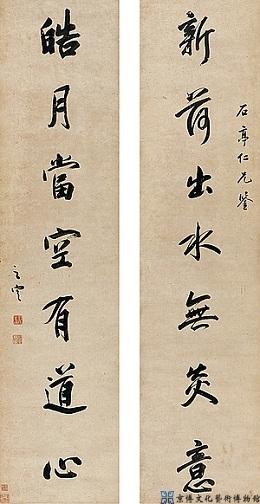 新荷出水無炎意
石亭仁兄鑒
皓月當空有道心
京博文化藝術博物館